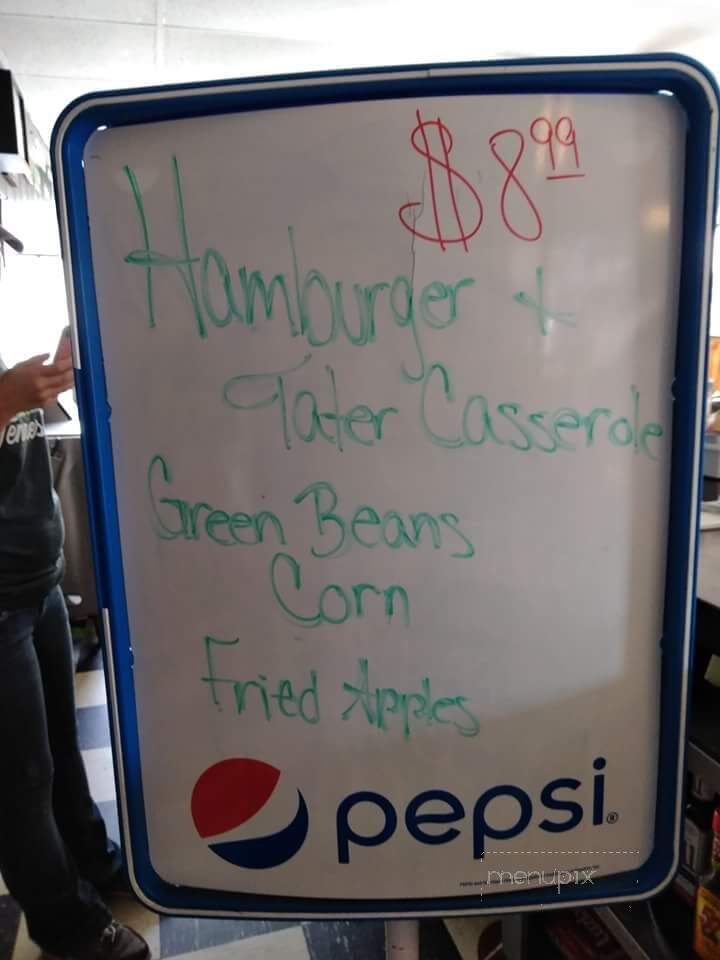 $8.99
Hamburger +
Tater Casserole
Green Beans
Corn
Fried Apples
pepsi®
menupix